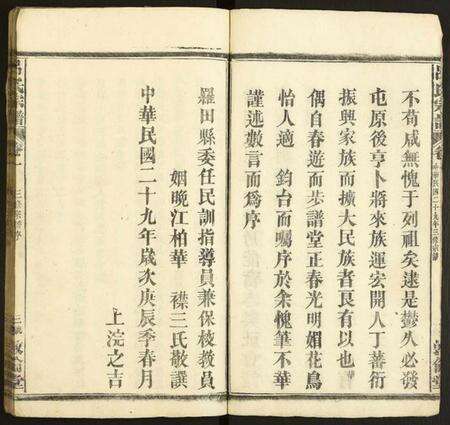 不苟咸無愧于列祖矣逮是鬱久必發
屯原後亨卜將來族運宏開人丁蕃衍
振興家族而擴大民族者良有以也
偶自春遊而步譜堂正春光明媚花鳥
怡人適 鈞台而囑序於余愧筆不華
謹述數言而為序
羅田縣委任民訓指導員兼保校教員
姻晚江柏華 襟三氏敬譔
中華民國二十九年歲次庚辰季春月
上浣之吉
呂氏宗譜 卷一